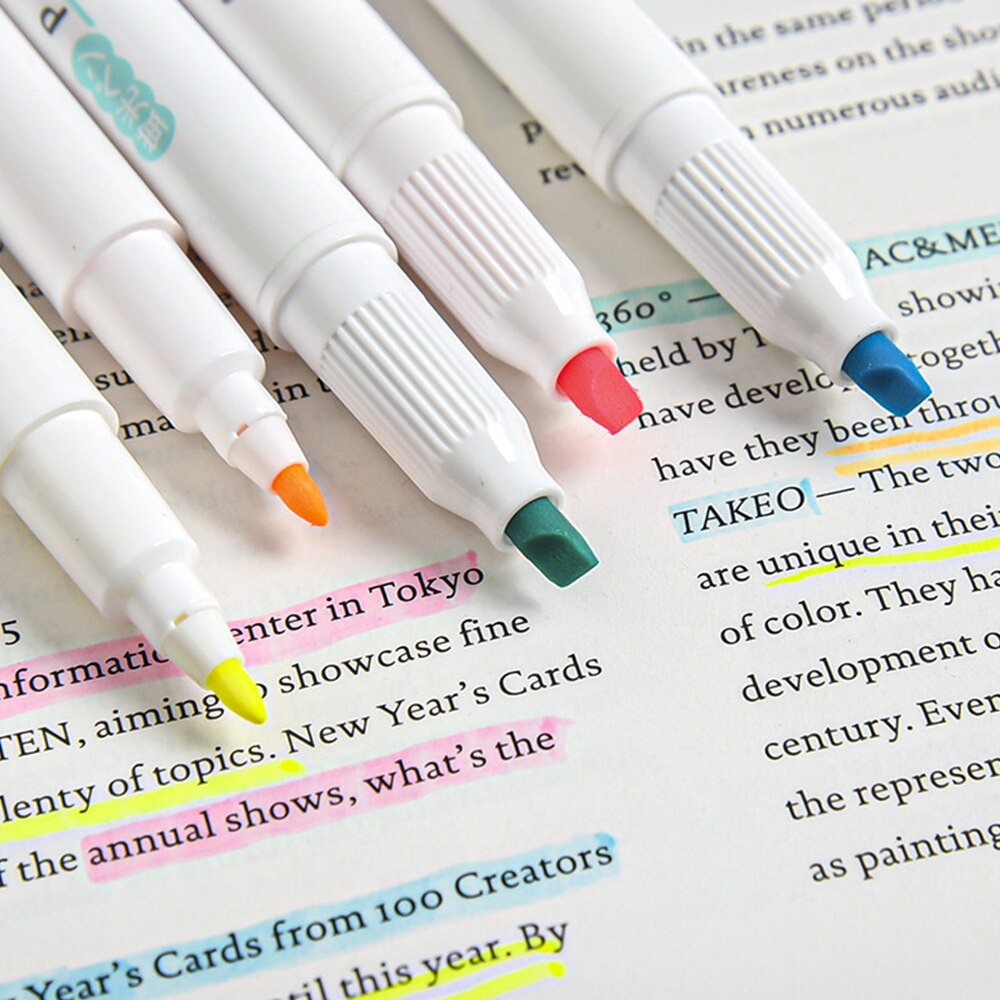 P
蛍光ペン
in the same perio
areness on the sho
numerous audi
rev
360° —
AC&ME
held by T
showi
have develo
togeth
have they been throu
TAKEO — The two
are unique in thei
of color. They ha
development o
century. Even
the represen
as painting
su
ma
in t
5
nformatio
enter in Tokyo
TEN, aiming
o showcase fine
lenty of topics. New Year's Cards
f the annual shows, what's the
Year's Cards from 100 Creators
til this year. By